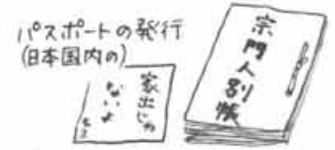 パスポートの発行
(日本国内の)
家出じゃ
ないよ
宗門人別帳